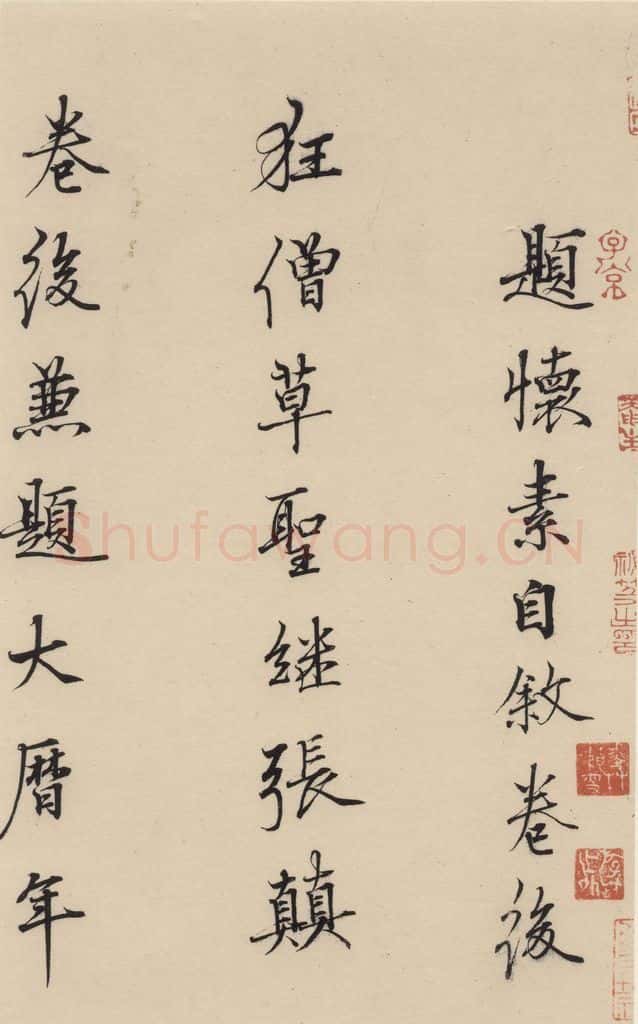 題懷素自敘卷後
狂僧草聖継張顛
卷後兼題大曆年
Shufawang.CN
子京